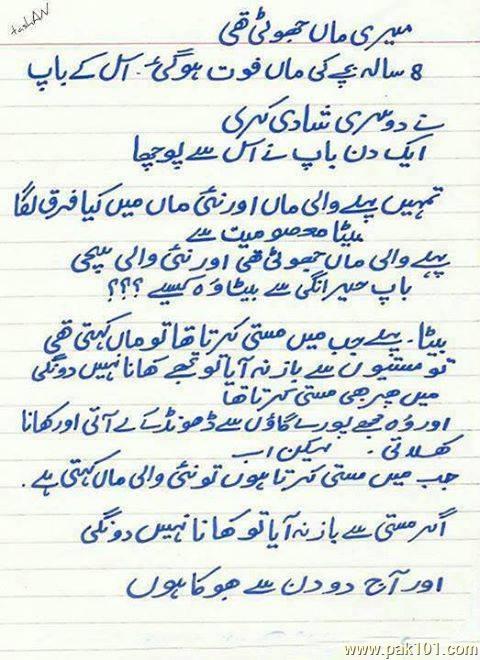 tashAN
میری ماں جھوٹی تھی
8 سالہ بچے کی ماں فوت ہوگئی۔ اس کے باپ
نے دوسری شادی کرلی
ایک دن باپ نے اس سے پوچھا
تمہیں پہلے والی ماں اور نئی ماں میں کیا فرق لگا
بیٹا معصومیت سے
پہلے والی ماں جھوٹی تھی اور نئی والی سچی
باپ حیرانگی سے بیٹا وہ کیسے ؟؟؟
بیٹا۔ پہلے جب میں مستی کرتا تھا تو ماں کہتی تھی
تو مستیوں سے باز نہ آیا تو تجھے کھانا نہیں دونگی
میں پھر بھی مستی کرتا تھا
اور وہ مجھے پورے گاؤں سے ڈھونڈ کے لے آتی اور کھانا
کھلاتی ۔ لیکن اب
جب میں مستی کرتا ہوں تو نئی والی ماں کہتی ہے ۔
اگر مستی سے باز نہ آیا تو کھانا نہیں دونگی
اور آج دو دن سے بھوکا ہوں
www.pak101.com